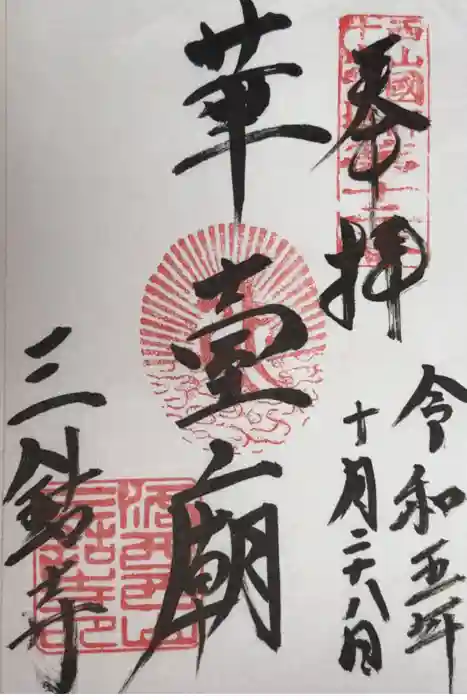 奉拝
令和五年
十月二十八日
華臺廟
三鈷寺